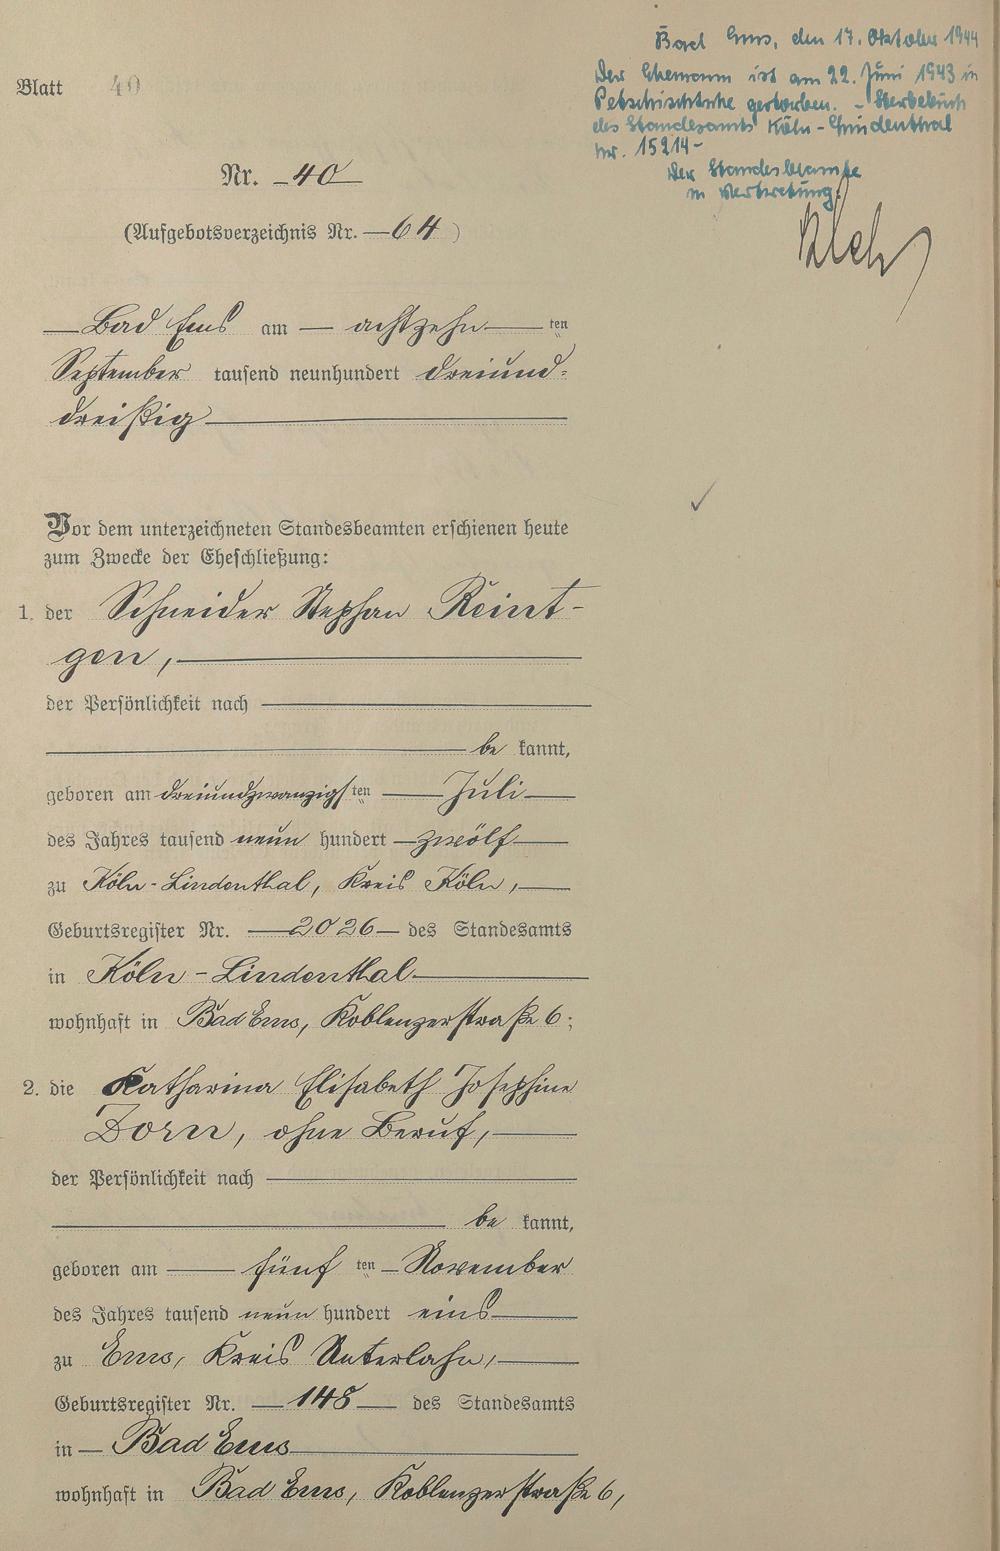 Bad Ems, den 17. Oktober 1944
Der Ehemann ist am 22. Juni 1943 in
gestorben. - Sterbebuch
des Standesamts Köln-Lindenthal
Nr. 15214-
Der Standesbeamte
in Vertretung:
Blatt 40
Nr. 40
(Aufgebotsverzeichnis Nr. 64)
Bad Ems am achtzehn ten
September tausend neunhundert dreiund-
dreißig
Vor dem unterzeichneten Standesbeamten erschienen heute
zum Zwecke der Eheschließung:
1. der Schneider Stephan Reint-
gen,
der Persönlichkeit nach
be kannt,
geboren am dreiundzwanzigsten Juli
des Jahres tausend neun hundert zwölf
zu Köln-Lindenthal, Kreis Köln,
Geburtsregister Nr. 2026 des Standesamts
in Köln-Lindenthal
wohnhaft in Bad Ems, Koblenzerstraße 6;
2. die Katharina Elisabeth Josephine
Dorn, ohne Beruf,
der Persönlichkeit nach
be kannt,
geboren am fünf ten November
des Jahres tausend neun hundert eins
zu Ems, Kreis Unterlahn,
Geburtsregister Nr. 148 des Standesamts
in Bad Ems
wohnhaft in Bad Ems, Koblenzerstraße 6,